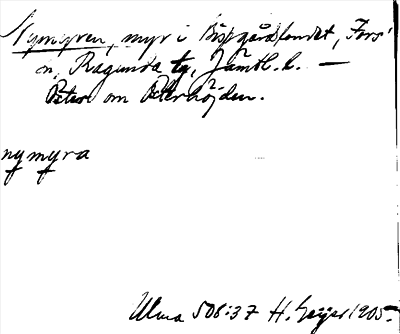 Nymyren, myr i Bispgårdsfondet, Fors'
sn, Ragunda tg, Jämtl. l. —
Öster om Österhöjden.
nymyra
Ulma 506:37 H. Geijer 1905.